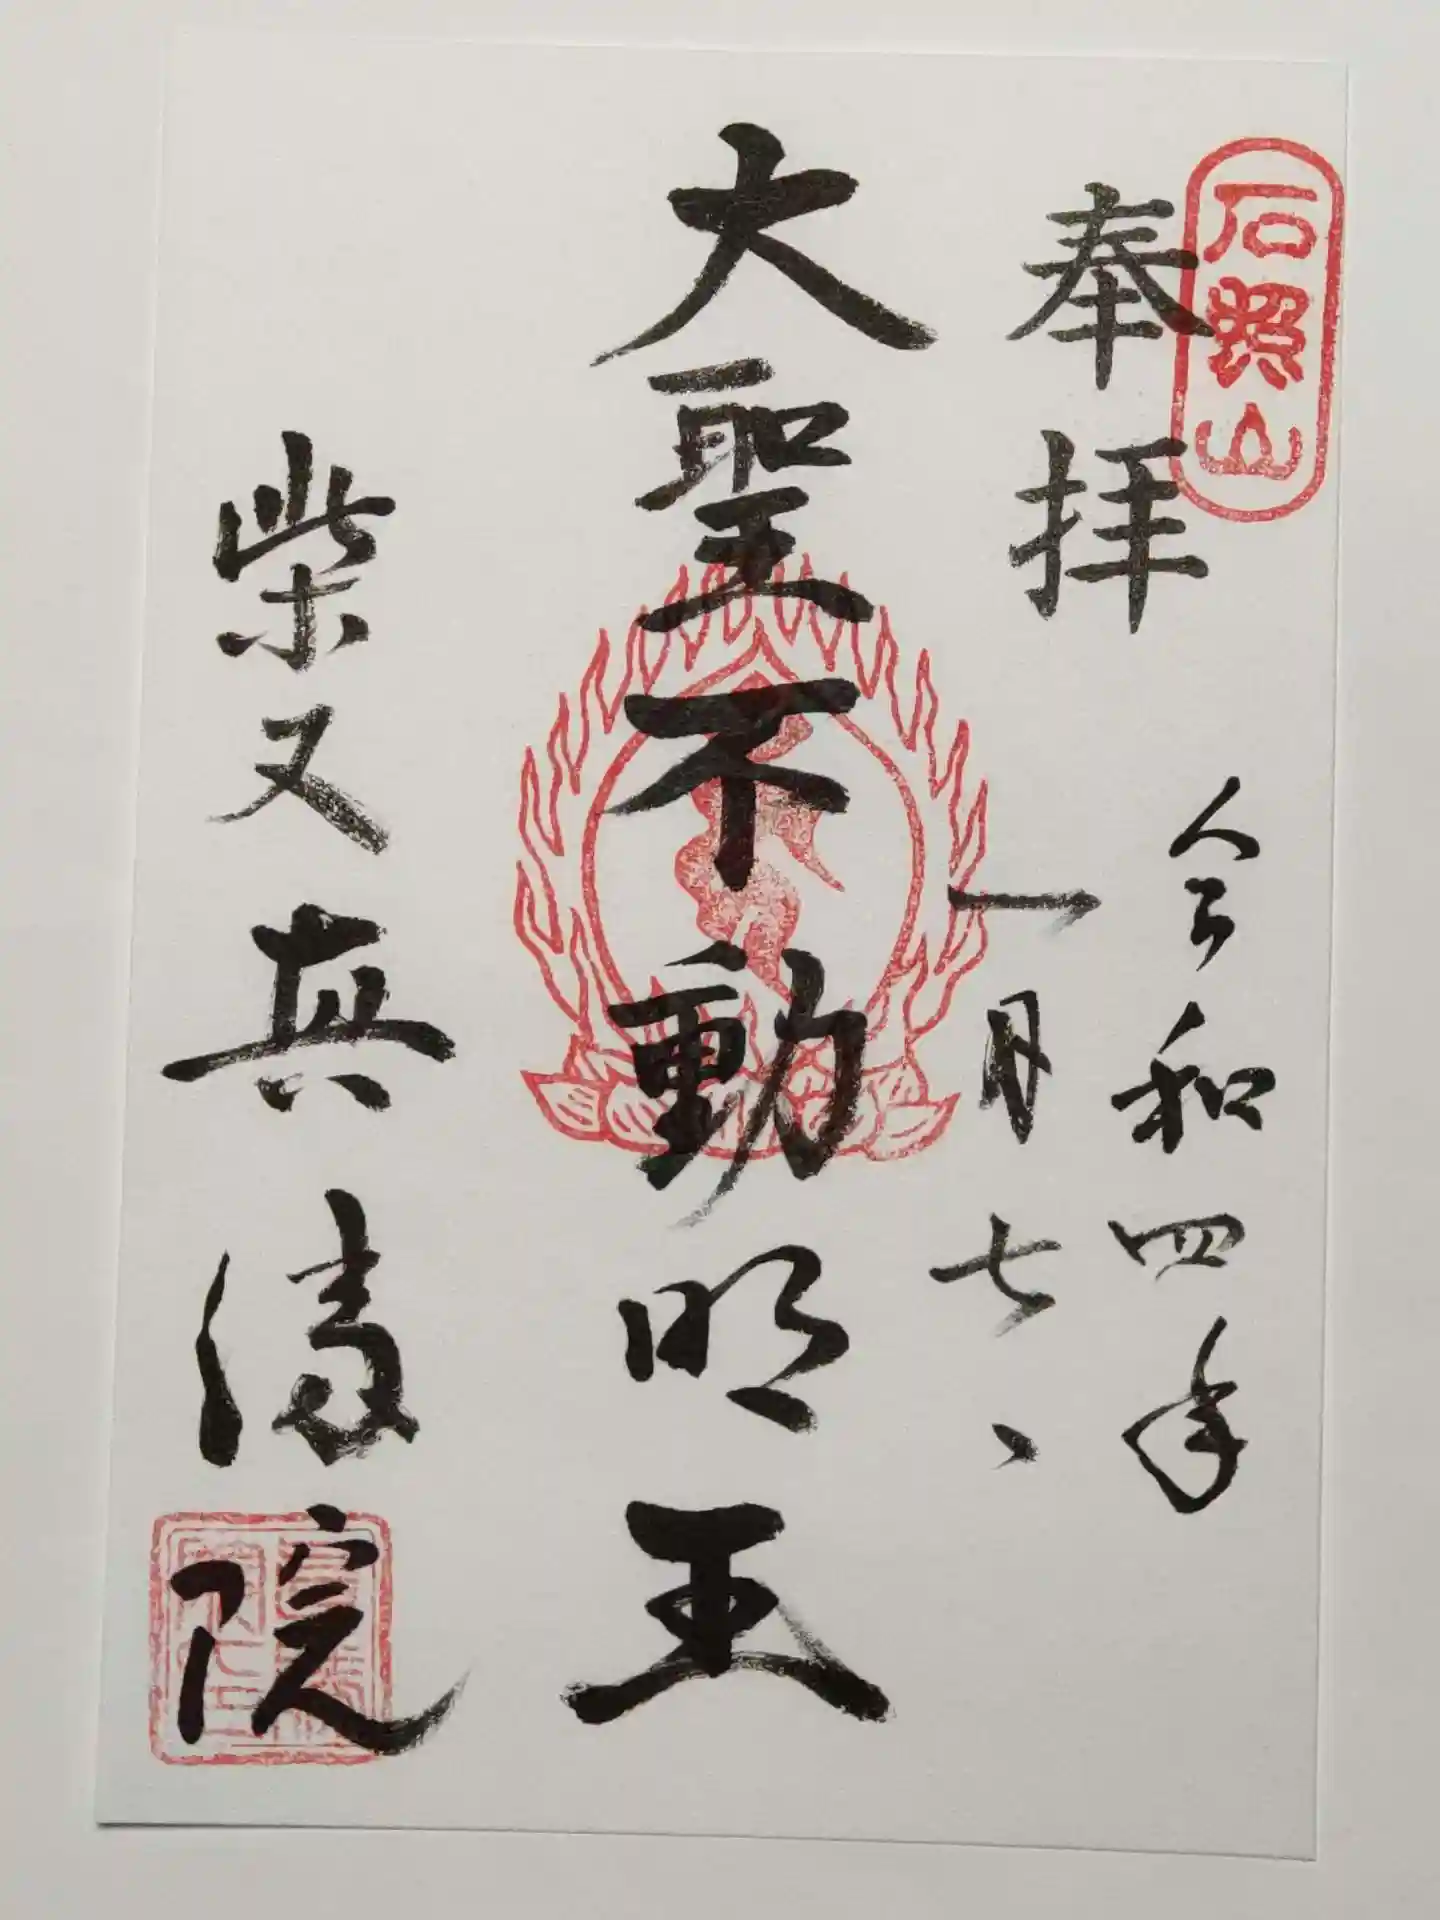 石照山
奉拝
令和四年
一月七日
大聖不動明王
柴又真勝院